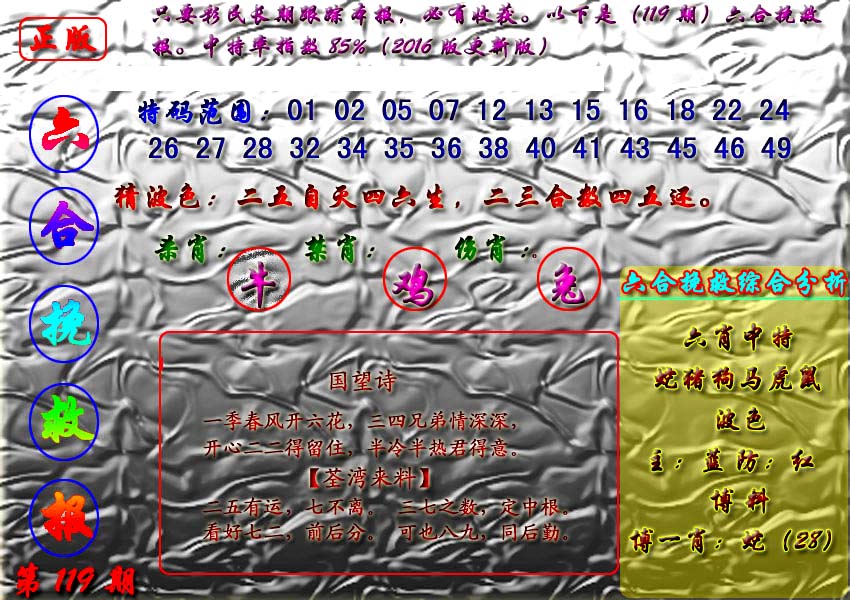 正版
只要彩民长期跟踪本报，必有收获。以下是（119期）六合挽救
报。中特率指数85%（2016版更新版）
六合挽救报
第119期
特码范围：01 02 05 07 12 13 15 16 18 22 24
26 27 28 32 34 35 36 38 40 41 43 45 46 49
猜波色：二五自灭四六生，二三合数四五还。
杀肖：牛 禁肖：鸡 伤肖：兔。
国望诗
一季春风开六花，三四兄弟情深深，
开心二二得留住，半冷半热君得意。
【荃湾来料】
二五有运，七不离。 三七之数，定中根。
看好七二，前后分。 可也八九，同后勤。
六合挽救综合分析
六肖中特
蛇猪狗马虎鼠
波色
主：蓝防：红
博料
博一肖：蛇（28）